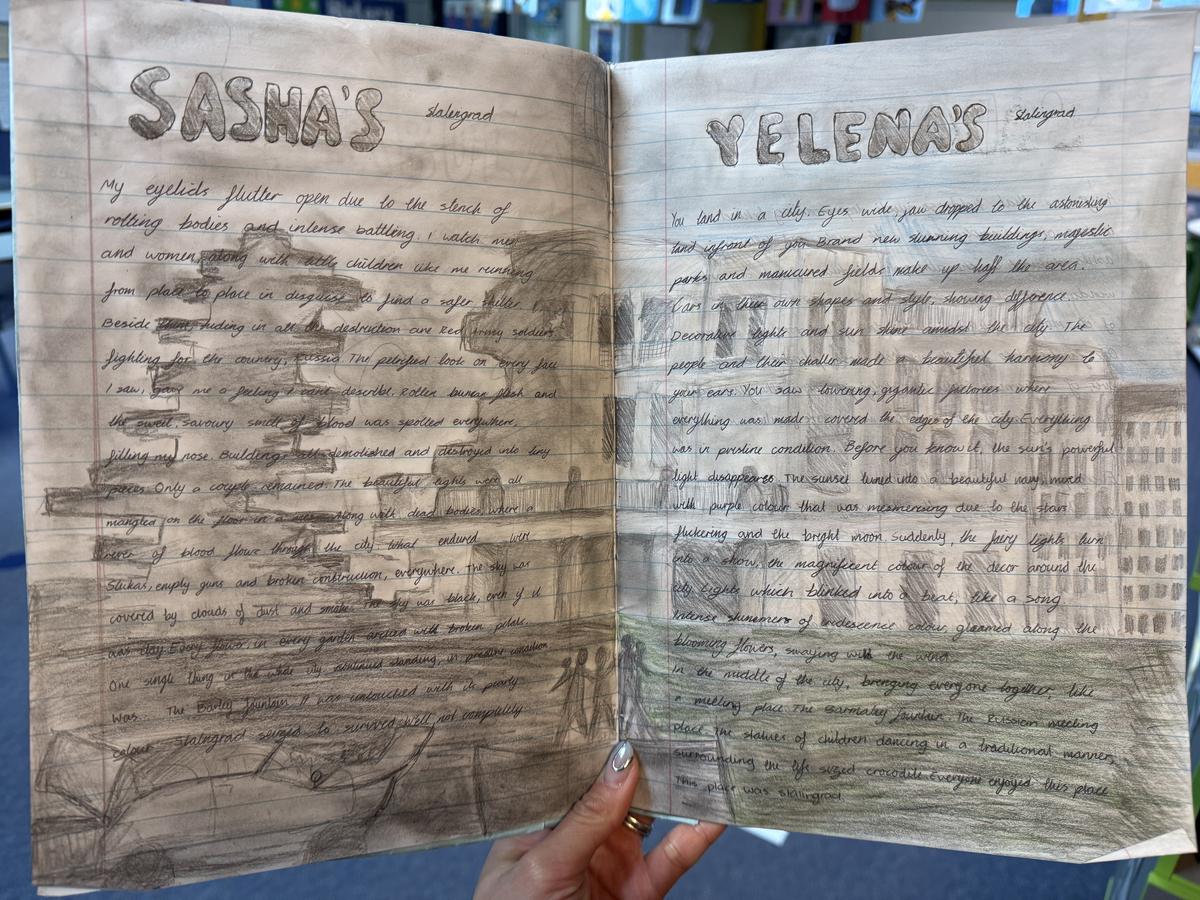 SASHA'S Stalingrad
My eyelids flutter open due to the stench of
rotting bodies and intense battling. I watch men
and women, along with little children like me running
from place to place in disguise to find a safer shelter. I
Beside them, hiding in all the destruction are Red Army soldiers
fighting for the country, Russia. The petrified look on every face
I saw, gave me a feeling I cant describe. Rotten human flesh and
the sweet, savoury smell of blood was spotted everywhere,
filling my nose. Buildings all demolished and destroyed into tiny
pieces. Only a couple remained. The beautiful lights were all
mangled on the floor in a mess. Along with dead bodies, where a
river of blood flows through the city. What endured were
Stukas, empty guns and broken construction, everywhere. The sky was
covered by clouds of dust and smoke. The sky was black, even if it
was day. Every flower, in every garden with broken petals.
One single thing in the whole city continued standing, in pristine condition
was... The Barley fountain. It was untouched with its pearly
colour. Stalingrad seized to survived. Well not completely
YELENA'S Stalingrad
You land in a city. Eyes wide, jaw dropped to the astonishing
land infront of you. Brand new stunning buildings, majestic
parks and manicured fields make up half the area.
Cars in their own shapes and style, showing difference.
Decorative lights and sun shine amidst the city. The
people and their chatter made a beautiful harmony to
your ears. You saw towering, gigantic factories where
everything was made covered the edges of the city. Everything
was in pristine condition. Before you know it, the sun's powerful
light disappeares. The sunset tuned into a beautiful navy, mixed
with purple colour that was mesmerising due to the stars
fluckering and the bright moon. Suddenly, the fairy lights turn
into a show, the magnificent colour of the decor around the
city. Lights which blinked into a beat, like a song.
Intense shimmers of iredescence colour, gleamed along the
blooming flowers, swaying with the wind.
In the middle of the city, brenging everyone together, like
a meeting place. The Barmaley fountain. The Russian meeting
place. The statues of children dancing in a traditional manner,
surrounding the life sized crocodile. Everyone enjoyed this place
This place was stalingrad.